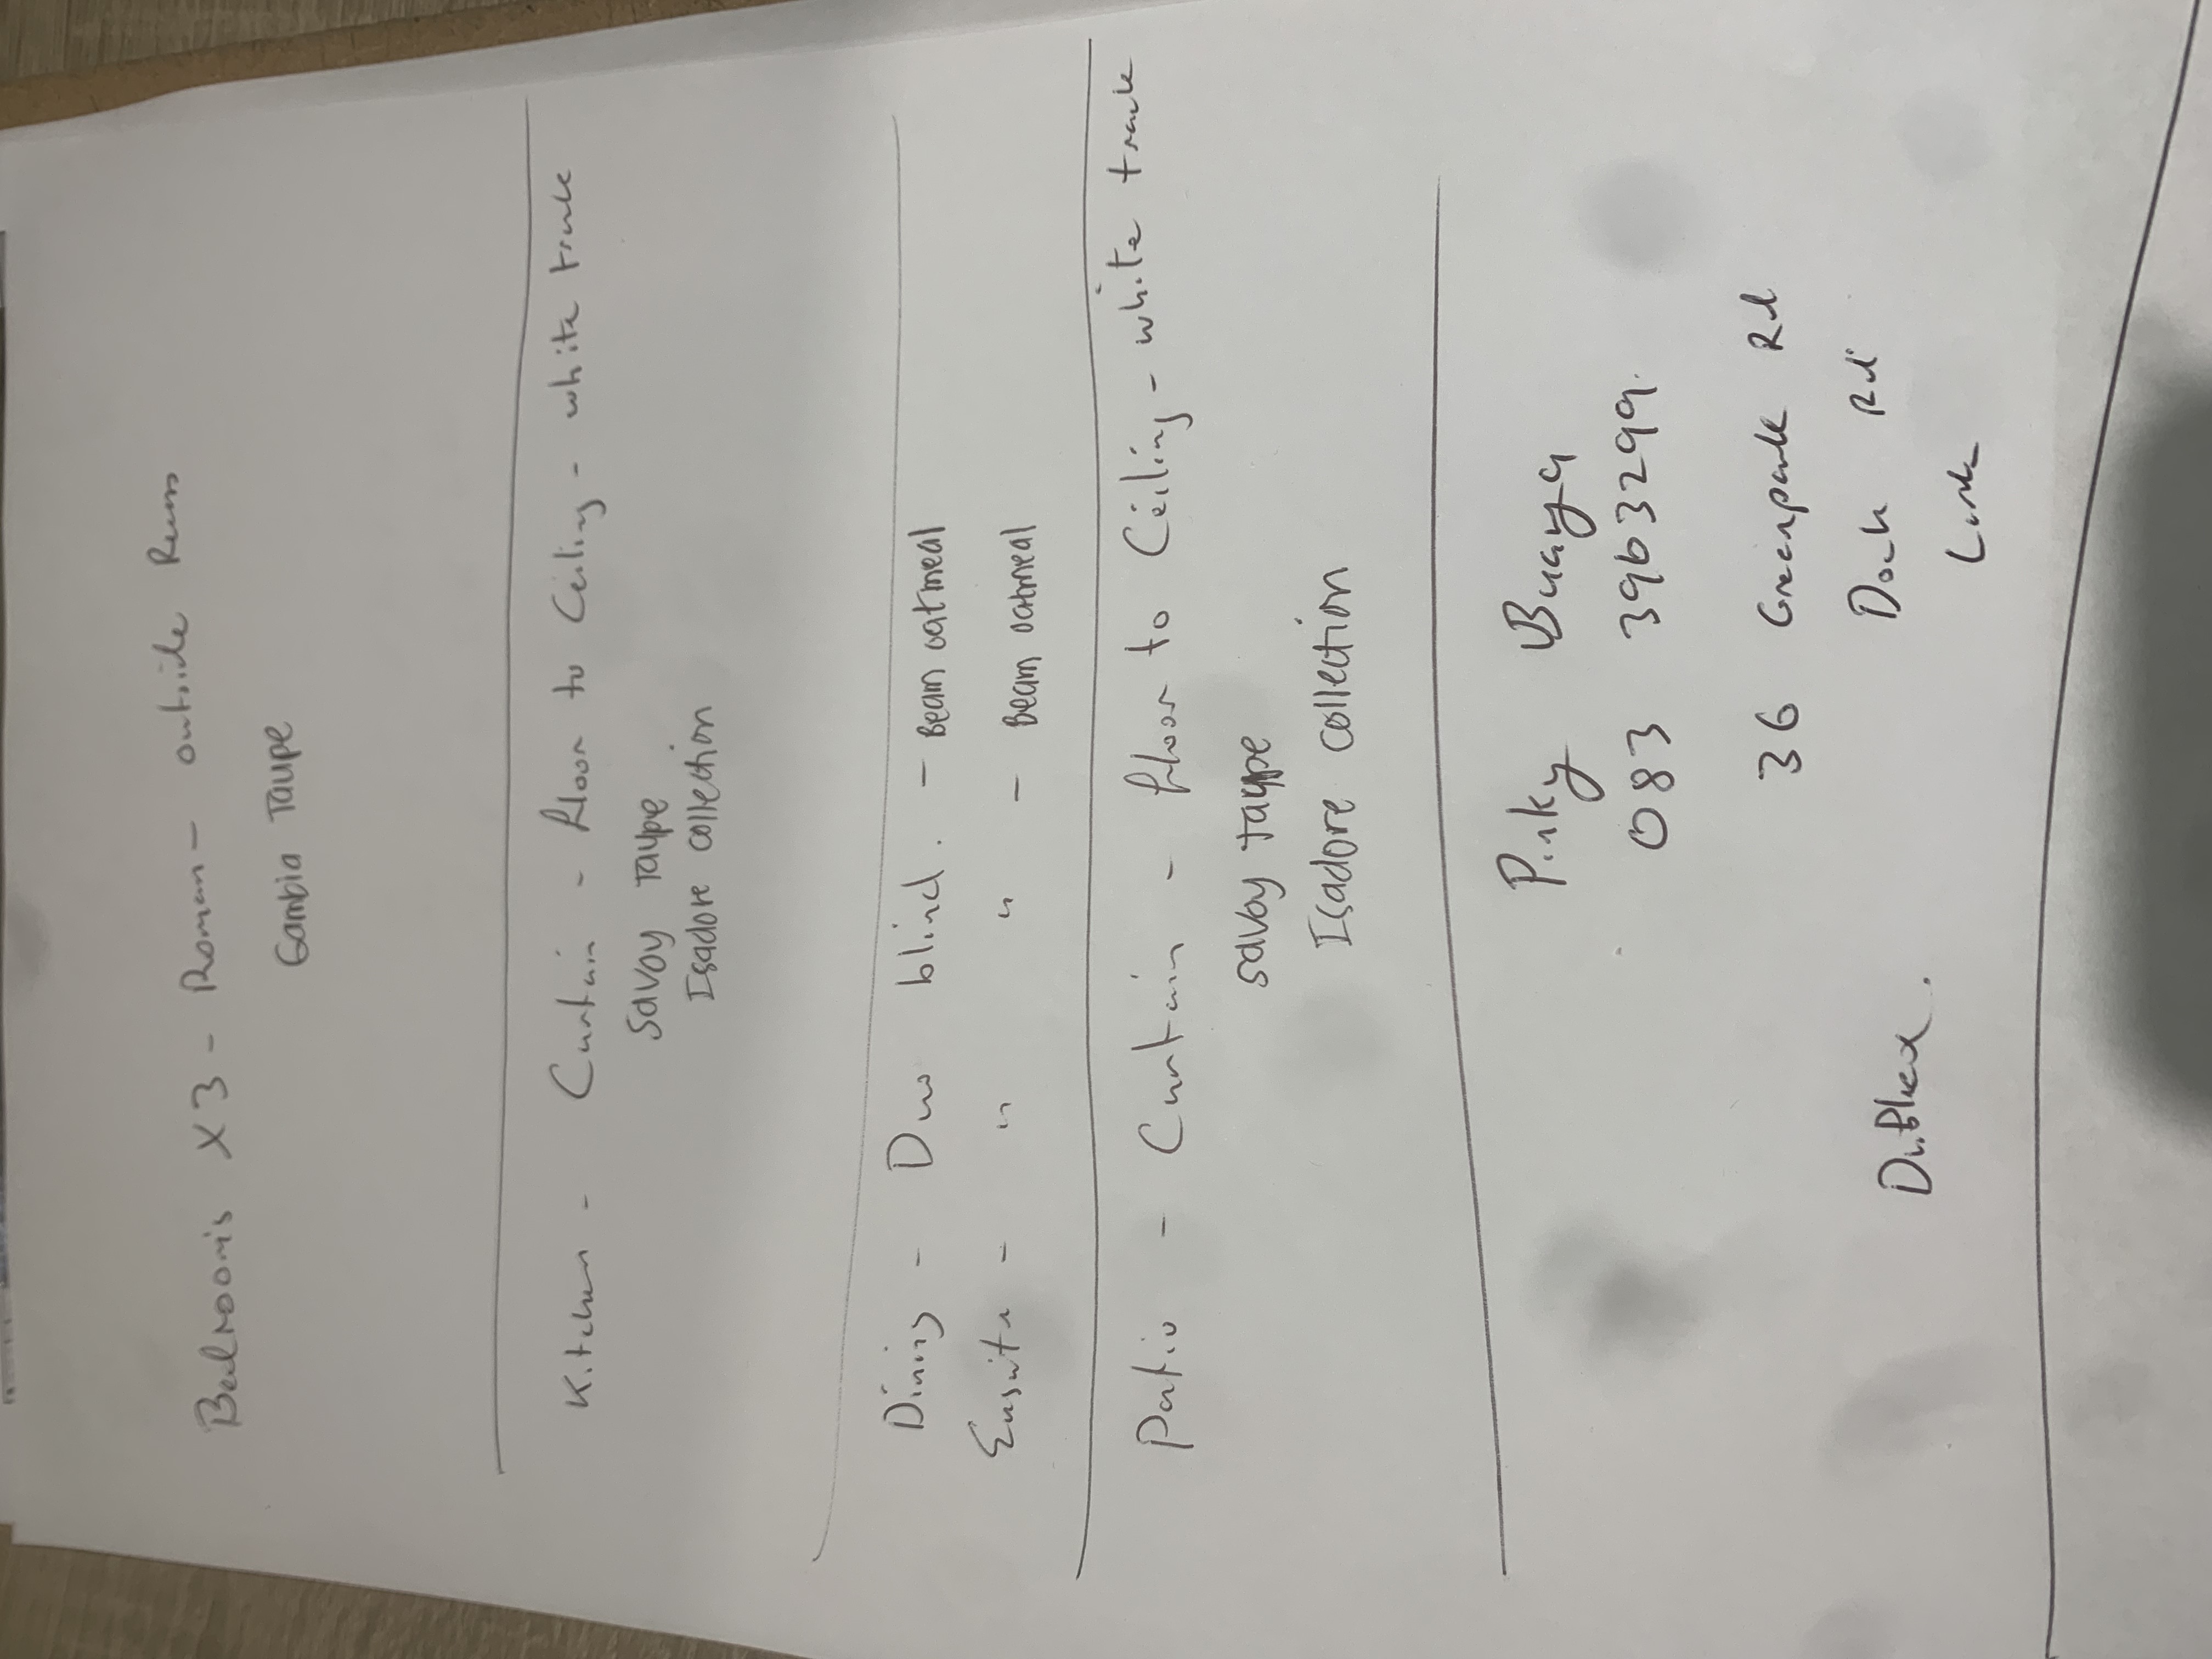 Bedrooms x3 - Roman - outside Recess
Gambia Taupe
Kitchen - Curtain - Floor to Ceiling - white track
Savoy Taupe
Isadore collection
Dining - Duo blind. - Beam oatmeal
Ensuite - " " - Beam oatmeal
Patio - Curtain - floor to Ceiling - white track
Savoy taupe
Isadore collection
Pinky
083 3963299.
36 Greenpark Rd
Dock Rd